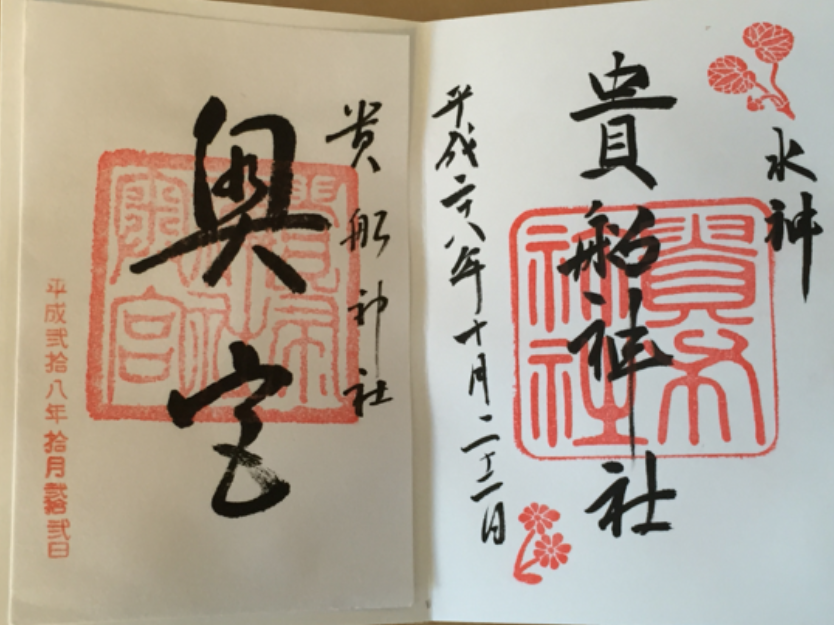 水神
貴船神社
平成二十八年十月二十二日
貴船神社
奥宮
平成弐拾八年拾月弐拾弐日